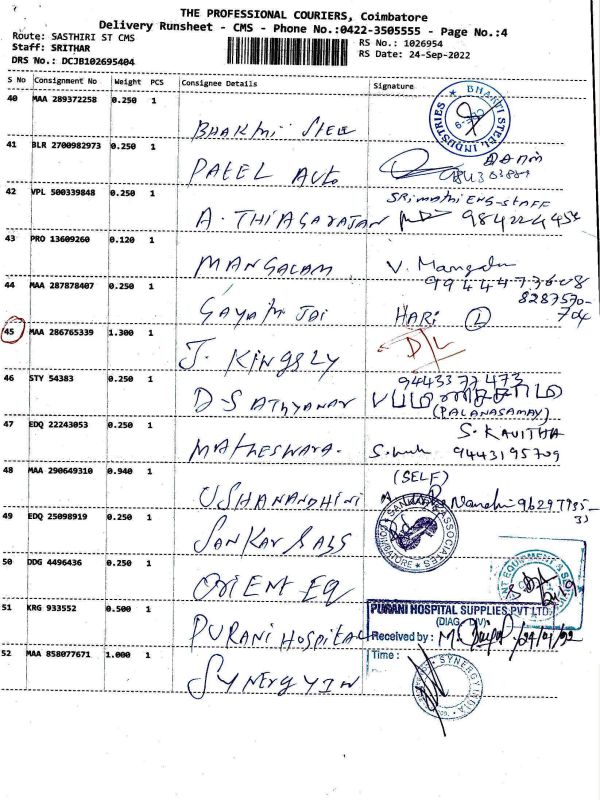 THE PROFESSIONAL COURIERS, Coimbatore
Delivery Runsheet - CMS - Phone No.:0422-3505555 - Page No.:4
Route: SASTHIRI ST CMS
Staff: SRITHAR
DRS No.: DCJB102695404
RS No.: 1026954
RS Date: 24-Sep-2022
S No Consignment No Weight PCS Consignee Details Signature
40 MAA 289372258 0.250 1
BHAKTHI STEEL
BHAKTI STEEL INDUSTRIES
41 BLR 2700982973 0.250 1
PATEL AUTO
42 VPL 500339848 0.250 1
SRIMATHI ENG-STAFF
A. THIAGARAJAN
43 PRO 13609260 0.120 1
MANGALAM V.
44 MAA 287878407 0.250 1
8287570-
704
HARI
45 MAA 286765339 1.300 1
J. KINGSLY D/L
46 STY 54383 0.250 1
9443377473
(PALANASAMAY)
47 EDQ 22243053 0.250 1
S. KAVITHA
9443195709
48 MAA 290649310 0.940 1
(SELF)
USHANANDHINI
49 EDQ 25098919 0.250 1
SANKAR & ASSOCIATES
COIMBATORE
50 DDG 4496436 0.250 1
ORIENT EQ
51 KRG 933552 0.500 1
PURANI HOSPITAL
PURANI HOSPITAL SUPPLIES PVT LTD
(DIAG. DIV)
Received by :
Time :
52 MAA 858077671 1.000 1
SYNERGY IN
SYNERGY INDIA